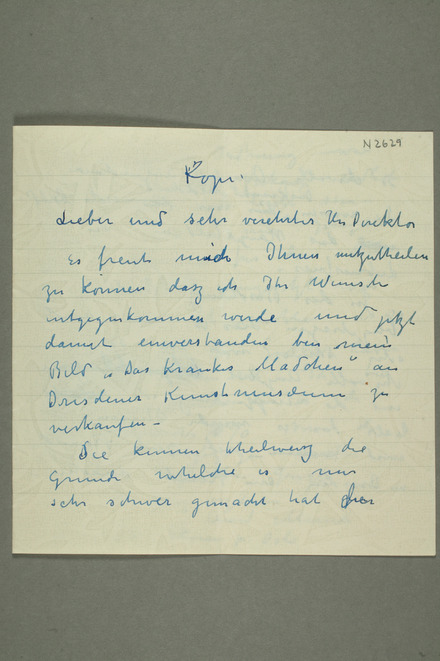 N2629
Kopi.
Lieber und sehr verehrter Hr Direktor
Es freut mich Ihnen mitzutheilen
zu können dasz ich Ihr Wunsch
entgegenkommen werde und jetzt
damit einverstanden ben mein
Bild „Das Kranke Mädchen" an
Dresdener Kunstmuseum zu
verkaufen –
Sie kennen theilweise die
Grunde welche is mir
sehr schwer gemacht hat